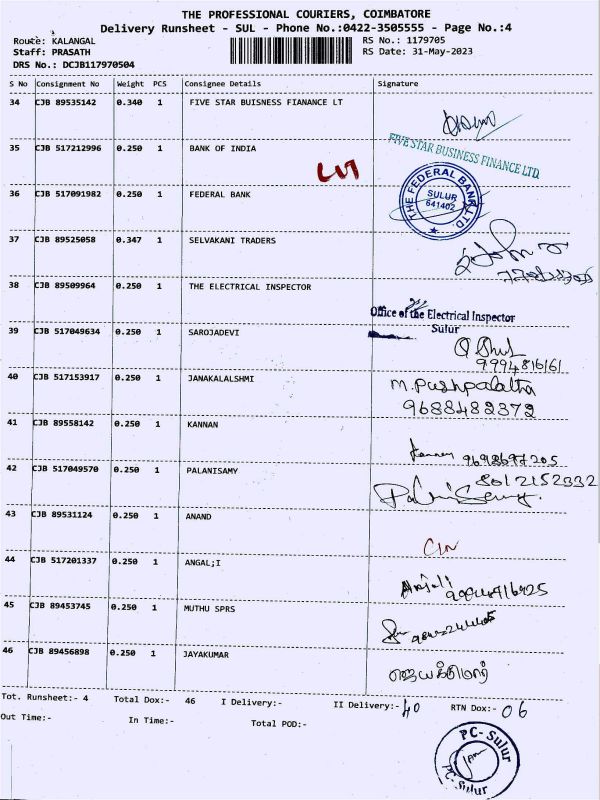 THE PROFESSIONAL COURIERS, COIMBATORE
Delivery Runsheet - SUL - Phone No.:0422-3505555 - Page No.:4
Route: KALANGAL RS No.: 1179705
Staff: PRASATH RS Date: 31-May-2023
DRS No.: DCJB117970504
S No Consignment No Weight PCS Consignee Details Signature
34 CJB 89535142 0.340 1 FIVE STAR BUISNESS FIANANCE LT
FIVE STAR BUSINESS FINANCE LTD.
35 CJB 517212996 0.250 1 BANK OF INDIA
36 CJB 517091982 0.250 1 FEDERAL BANK
THE FEDERAL BANK LTD.
SULUR
641402
37 CJB 89525058 0.347 1 SELVAKANI TRADERS
38 CJB 89509964 0.250 1 THE ELECTRICAL INSPECTOR
Office of the Electrical Inspector
Sulur
39 CJB 517049634 0.250 1 SAROJADEVI
9994816161
40 CJB 517153917 0.250 1 JANAKALALSHMI
M. Pushpalatha
9688482372
41 CJB 89558142 0.250 1 KANNAN
42 CJB 517049570 0.250 1 PALANISAMY
8012152332
43 CJB 89531124 0.250 1 ANAND
44 CJB 517201337 0.250 1 ANGAL;I
45 CJB 89453745 0.250 1 MUTHU SPRS
46 CJB 89456898 0.250 1 JAYAKUMAR
Tot. Runsheet:- 4 Total Dox:- 46 I Delivery:- II Delivery:- 40 RTN Dox:- 06
Out Time:- In Time:- Total POD:-
PC- Sulur
PC- Sulur